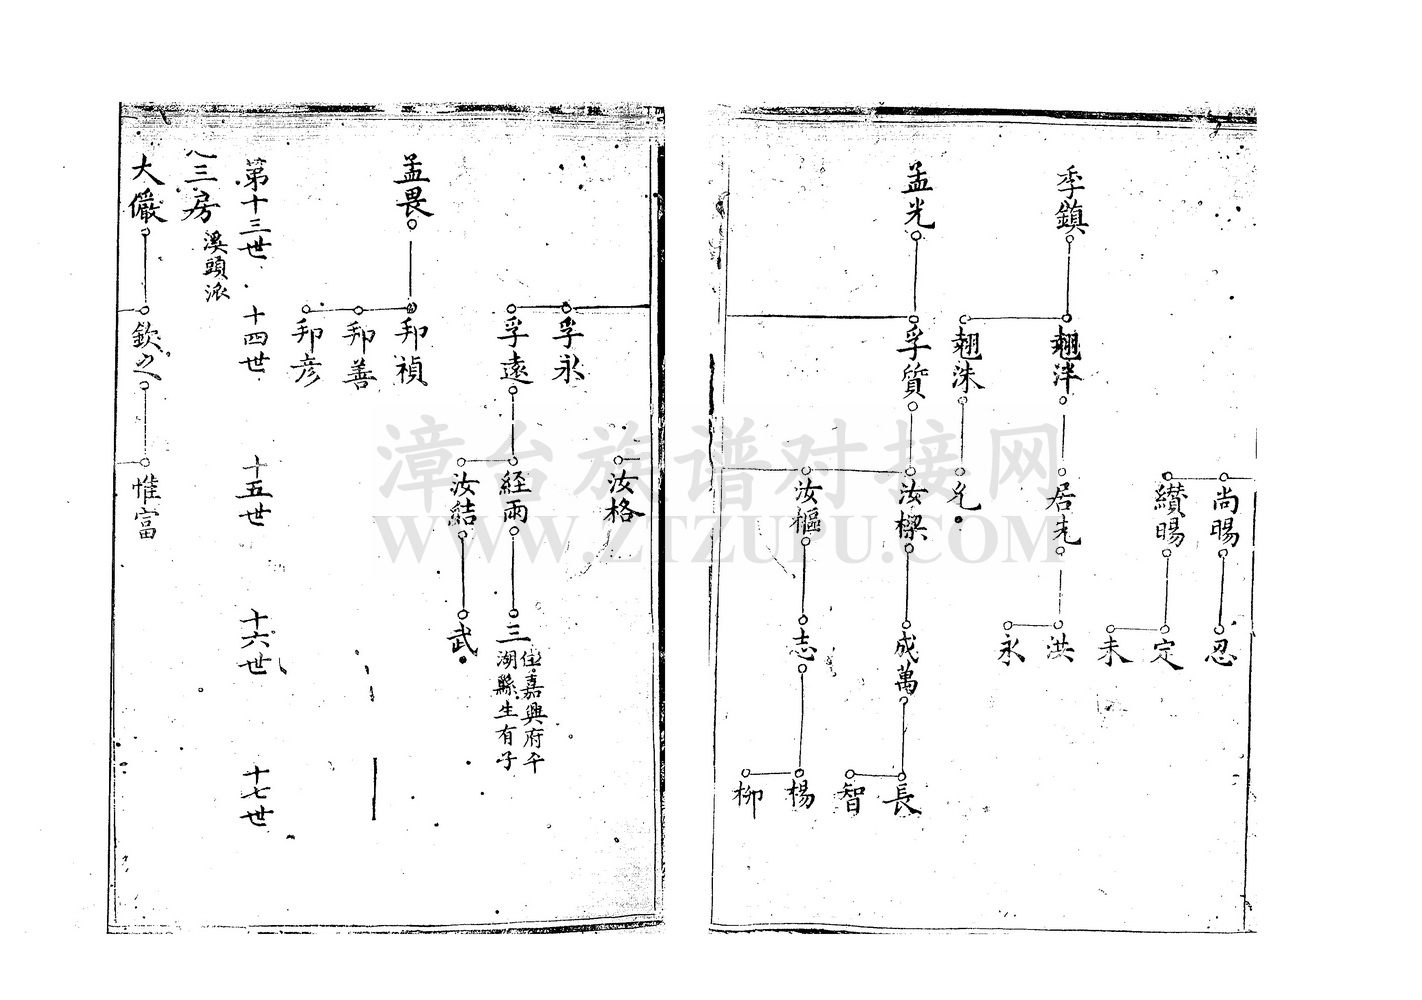 尚賜
忍
纘賜
定
未
季鎮
翹泮
居先
洪
永
翹洙
允
孟光
孚質
汝楔
成萬
長
智
汝樞
志
楊
柳
汝格
孚永
孚遠
経雨
三
住嘉興府千
湖縣生有子
汝結
武
孟畏
邦禎
邦善
邦彦
第十三世
十四世
十五世
十六世
十七世
三房
溪頭派
大儼
欽之
惟富
漳台族谱对接网
WWW.ZTZUPU.COM